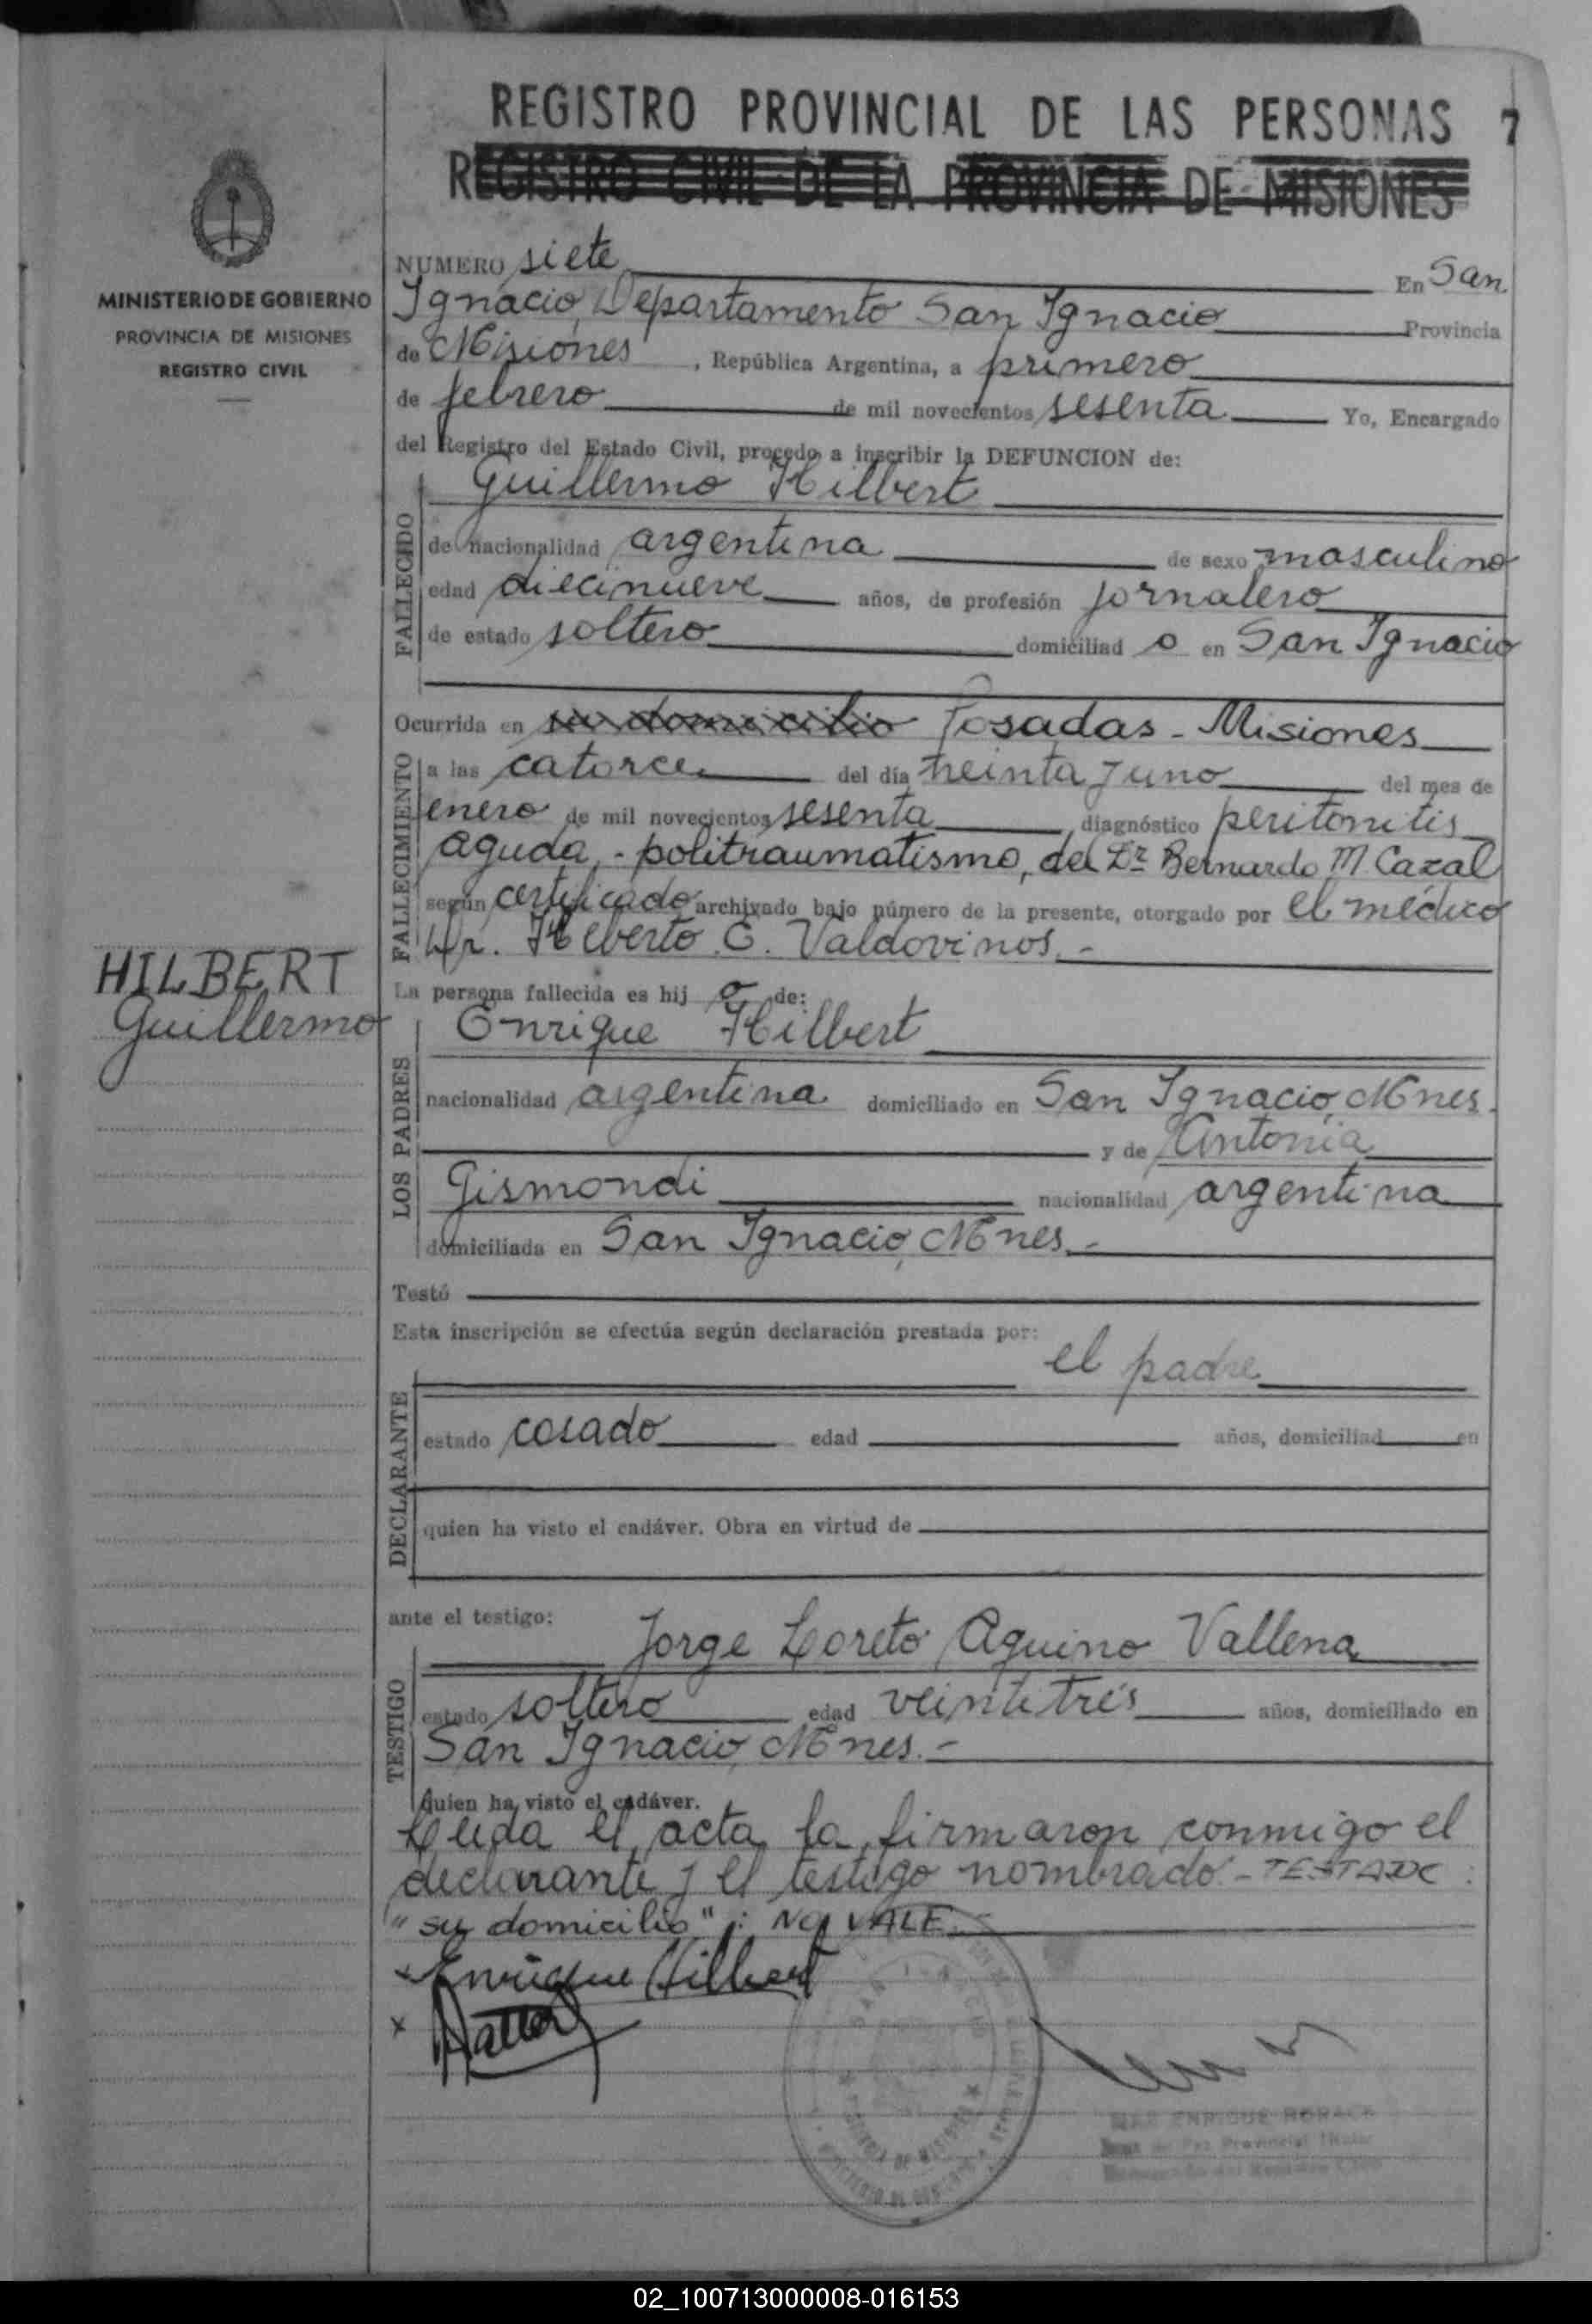 REGISTRO PROVINCIAL DE LAS PERSONAS 7
REGISTRO CIVIL DE LA PROVINCIA DE MISIONES
MINISTERIO DE GOBIERNO
PROVINCIA DE MISIONES
REGISTRO CIVIL
NUMERO siete En San
Ignacio, Departamento San Ignacio Provincia
de Misiones , República Argentina, a primero
de febrero de mil novecientos sesenta Yo, Encargado
del Registro del Estado Civil, procedo a inscribir la DEFUNCION de:
Guillermo Hilbert
FALLECIDO
de nacionalidad argentina de sexo masculino
edad diecinueve años, de profesión jornalero
de estado soltero domiciliad o en San Ignacio
Ocurrida en su domicilio Posadas - Misiones
FALLECIMIENTO
a las catorce del día treinta y uno del mes de
enero de mil novecientos sesenta , diagnóstico peritonitis
aguda, - politraumatismo, del Dr. Bernardo M. Cazal
según certificado archivado bajo número de la presente, otorgado por el médico
Dr. Heberto E. Valdovinos. -
HILBERT
Guillermo
La persona fallecida es hij o de:
LOS PADRES
Enrique Hilbert
nacionalidad argentina domiciliado en San Ignacio, Mnes.
y de Antonia
Gismondi nacionalidad argentina
domiciliada en San Ignacio, Mnes. -
Testó
Esta inscripción se efectúa según declaración prestada por:
el padre
DECLARANTE
estado casado edad años, domiciliad en
quien ha visto el cadáver. Obra en virtud de
ante el testigo:
TESTIGO
Jorge Loreto Aquino Vallena
estado soltero edad veintitrés años, domiciliado en
San Ignacio, Mnes. -
quien ha visto el cadáver.
Leida el acta, la firmaron conmigo el
declarante y el testigo nombrado. - TESTADO:
"su domicilio": NO VALE. -
x Enrique Hilbert
x
ENRIQUE
02_100713000008-016153